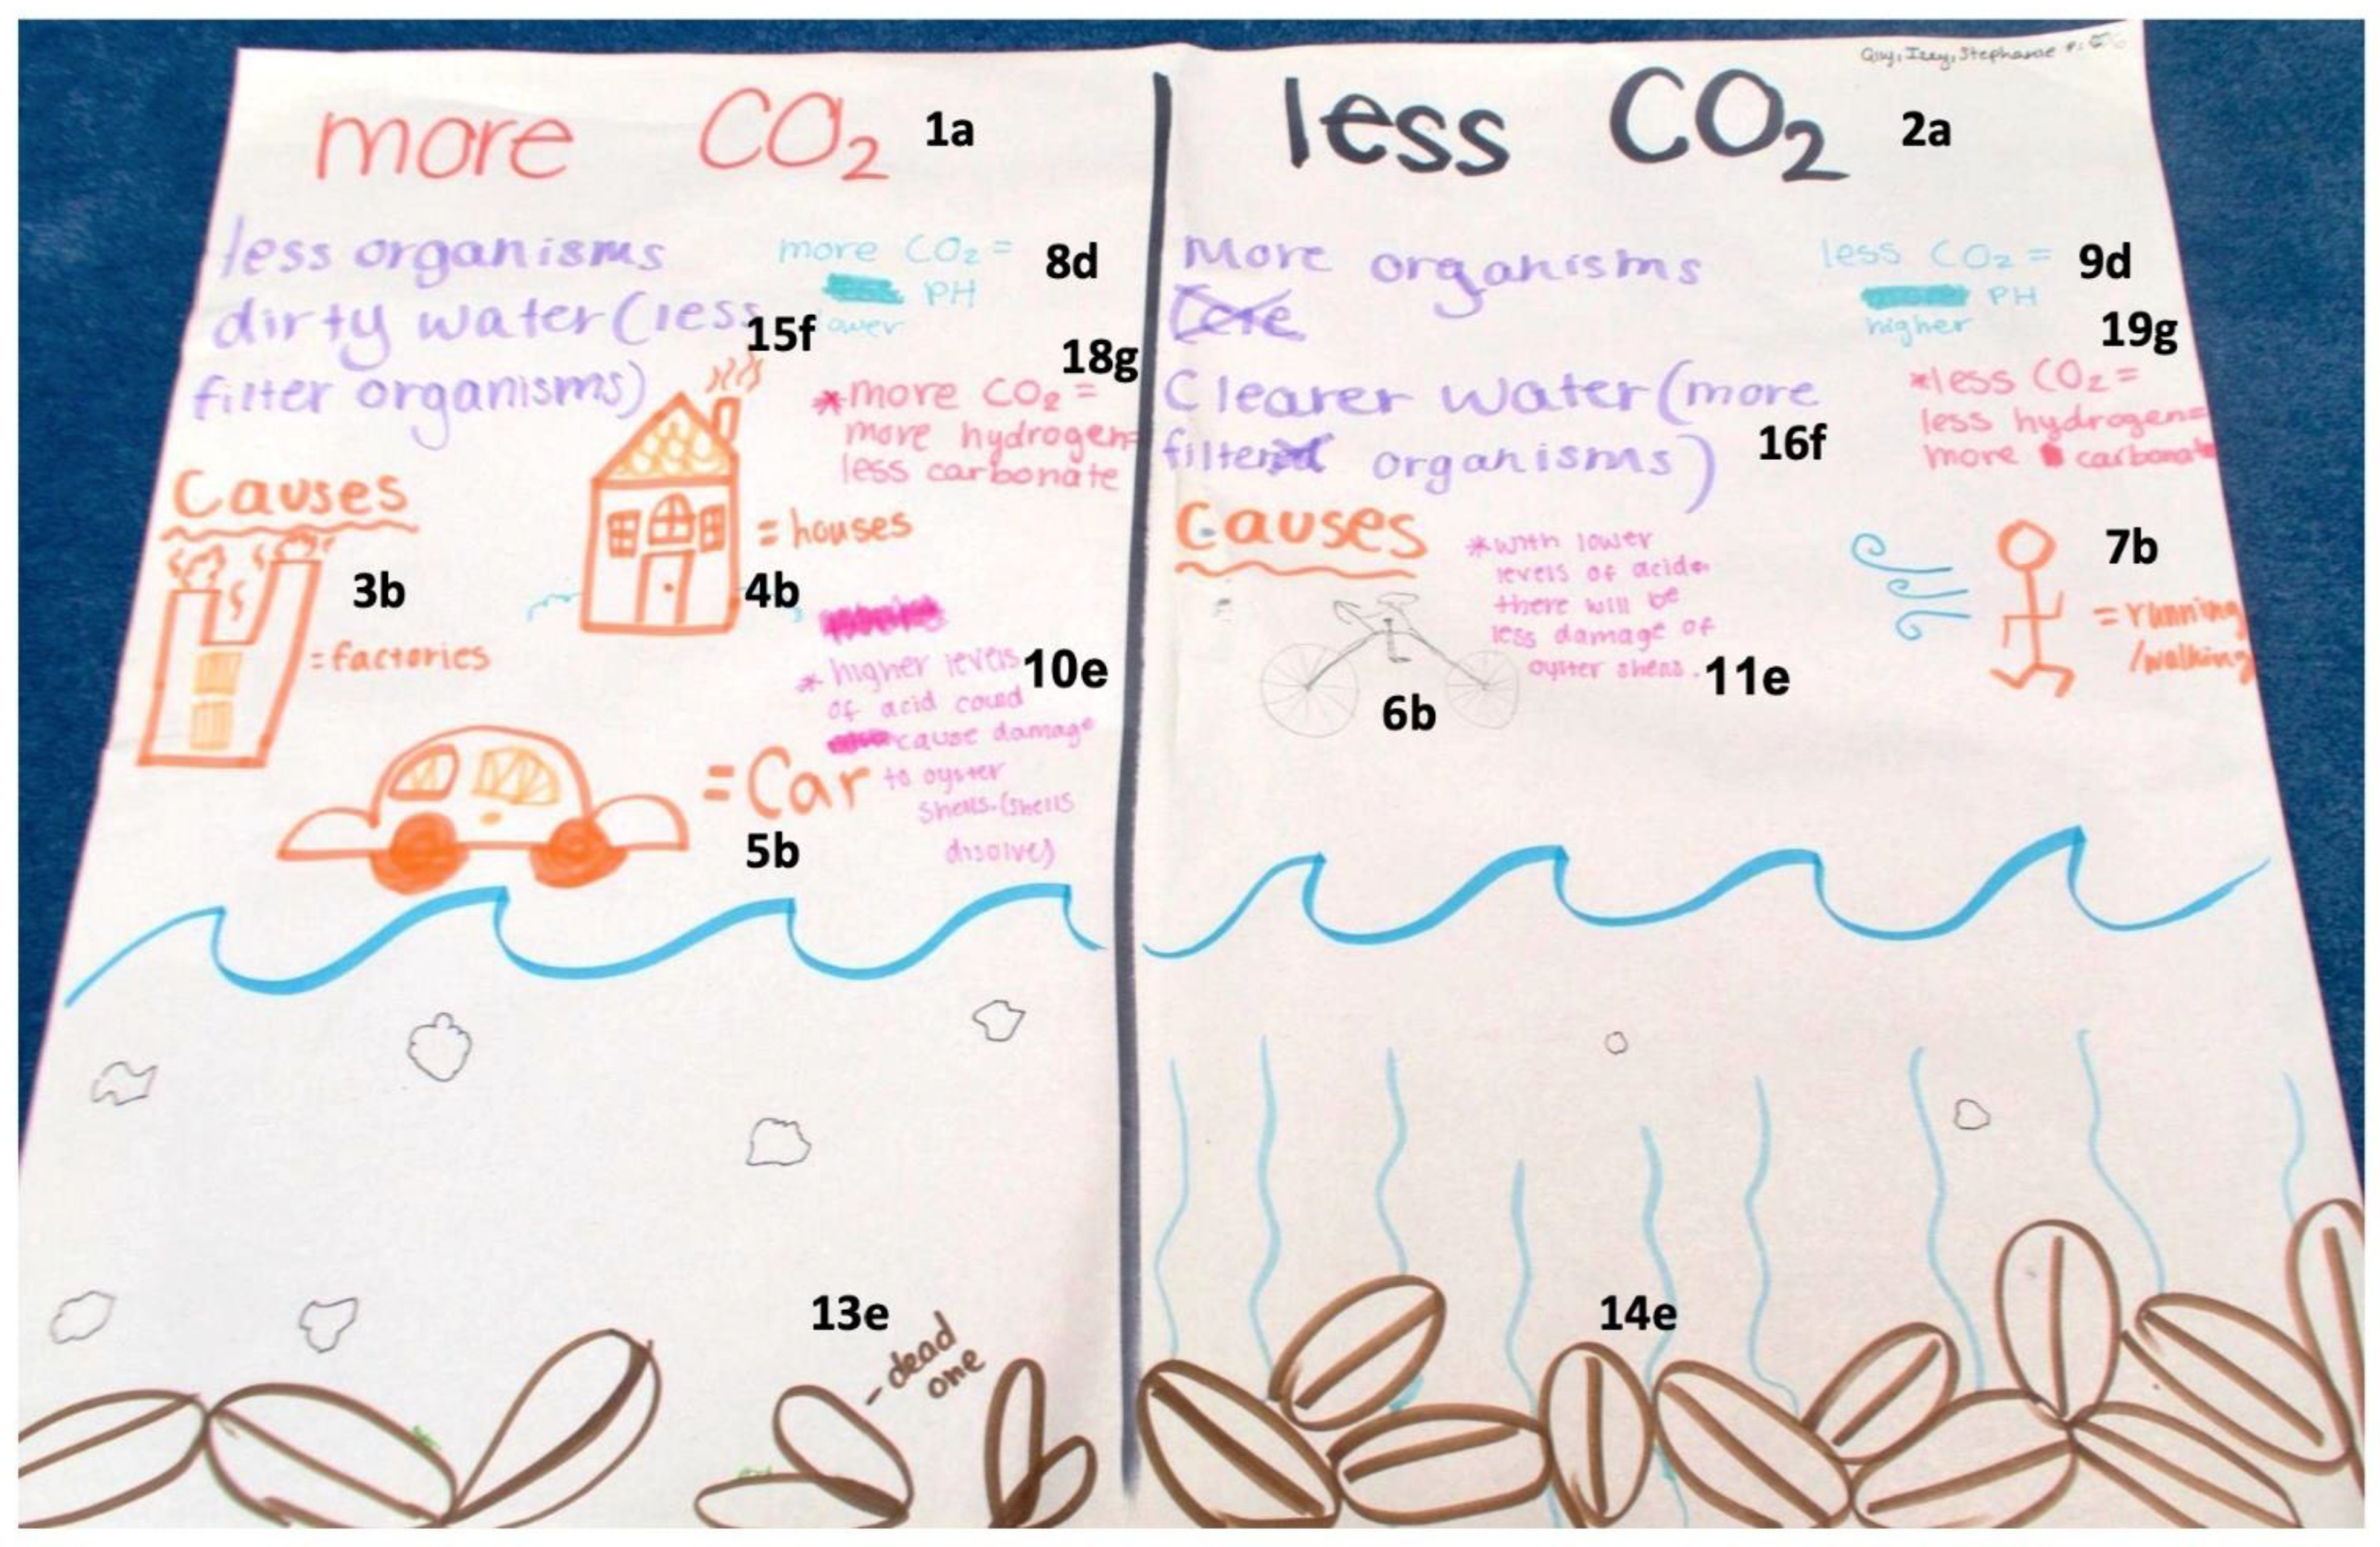 Izzy, Stephanie
more CO₂ 1a
less organisms
dirty water (less
filter organisms)
15f
more CO₂ = 8d
PH
lower
18g
*more CO₂ =
more hydrogen=
less carbonate
Causes
3b
= factories
= houses
4b
* higher levels 10e
of acid could
cause damage
to oyster
shells. (shells
disolve)
= Car
5b
13e
- dead
one
less CO₂ 2a
More organisms
Clearer water (more
filter organisms)
16f
less CO₂ = 9d
PH
higher
19g
*less CO₂ =
less hydrogen=
more carbonate
Causes
*with lower
levels of acid
there will be
less damage of
oyster shells. 11e
6b
7b
= running
/walking
14e